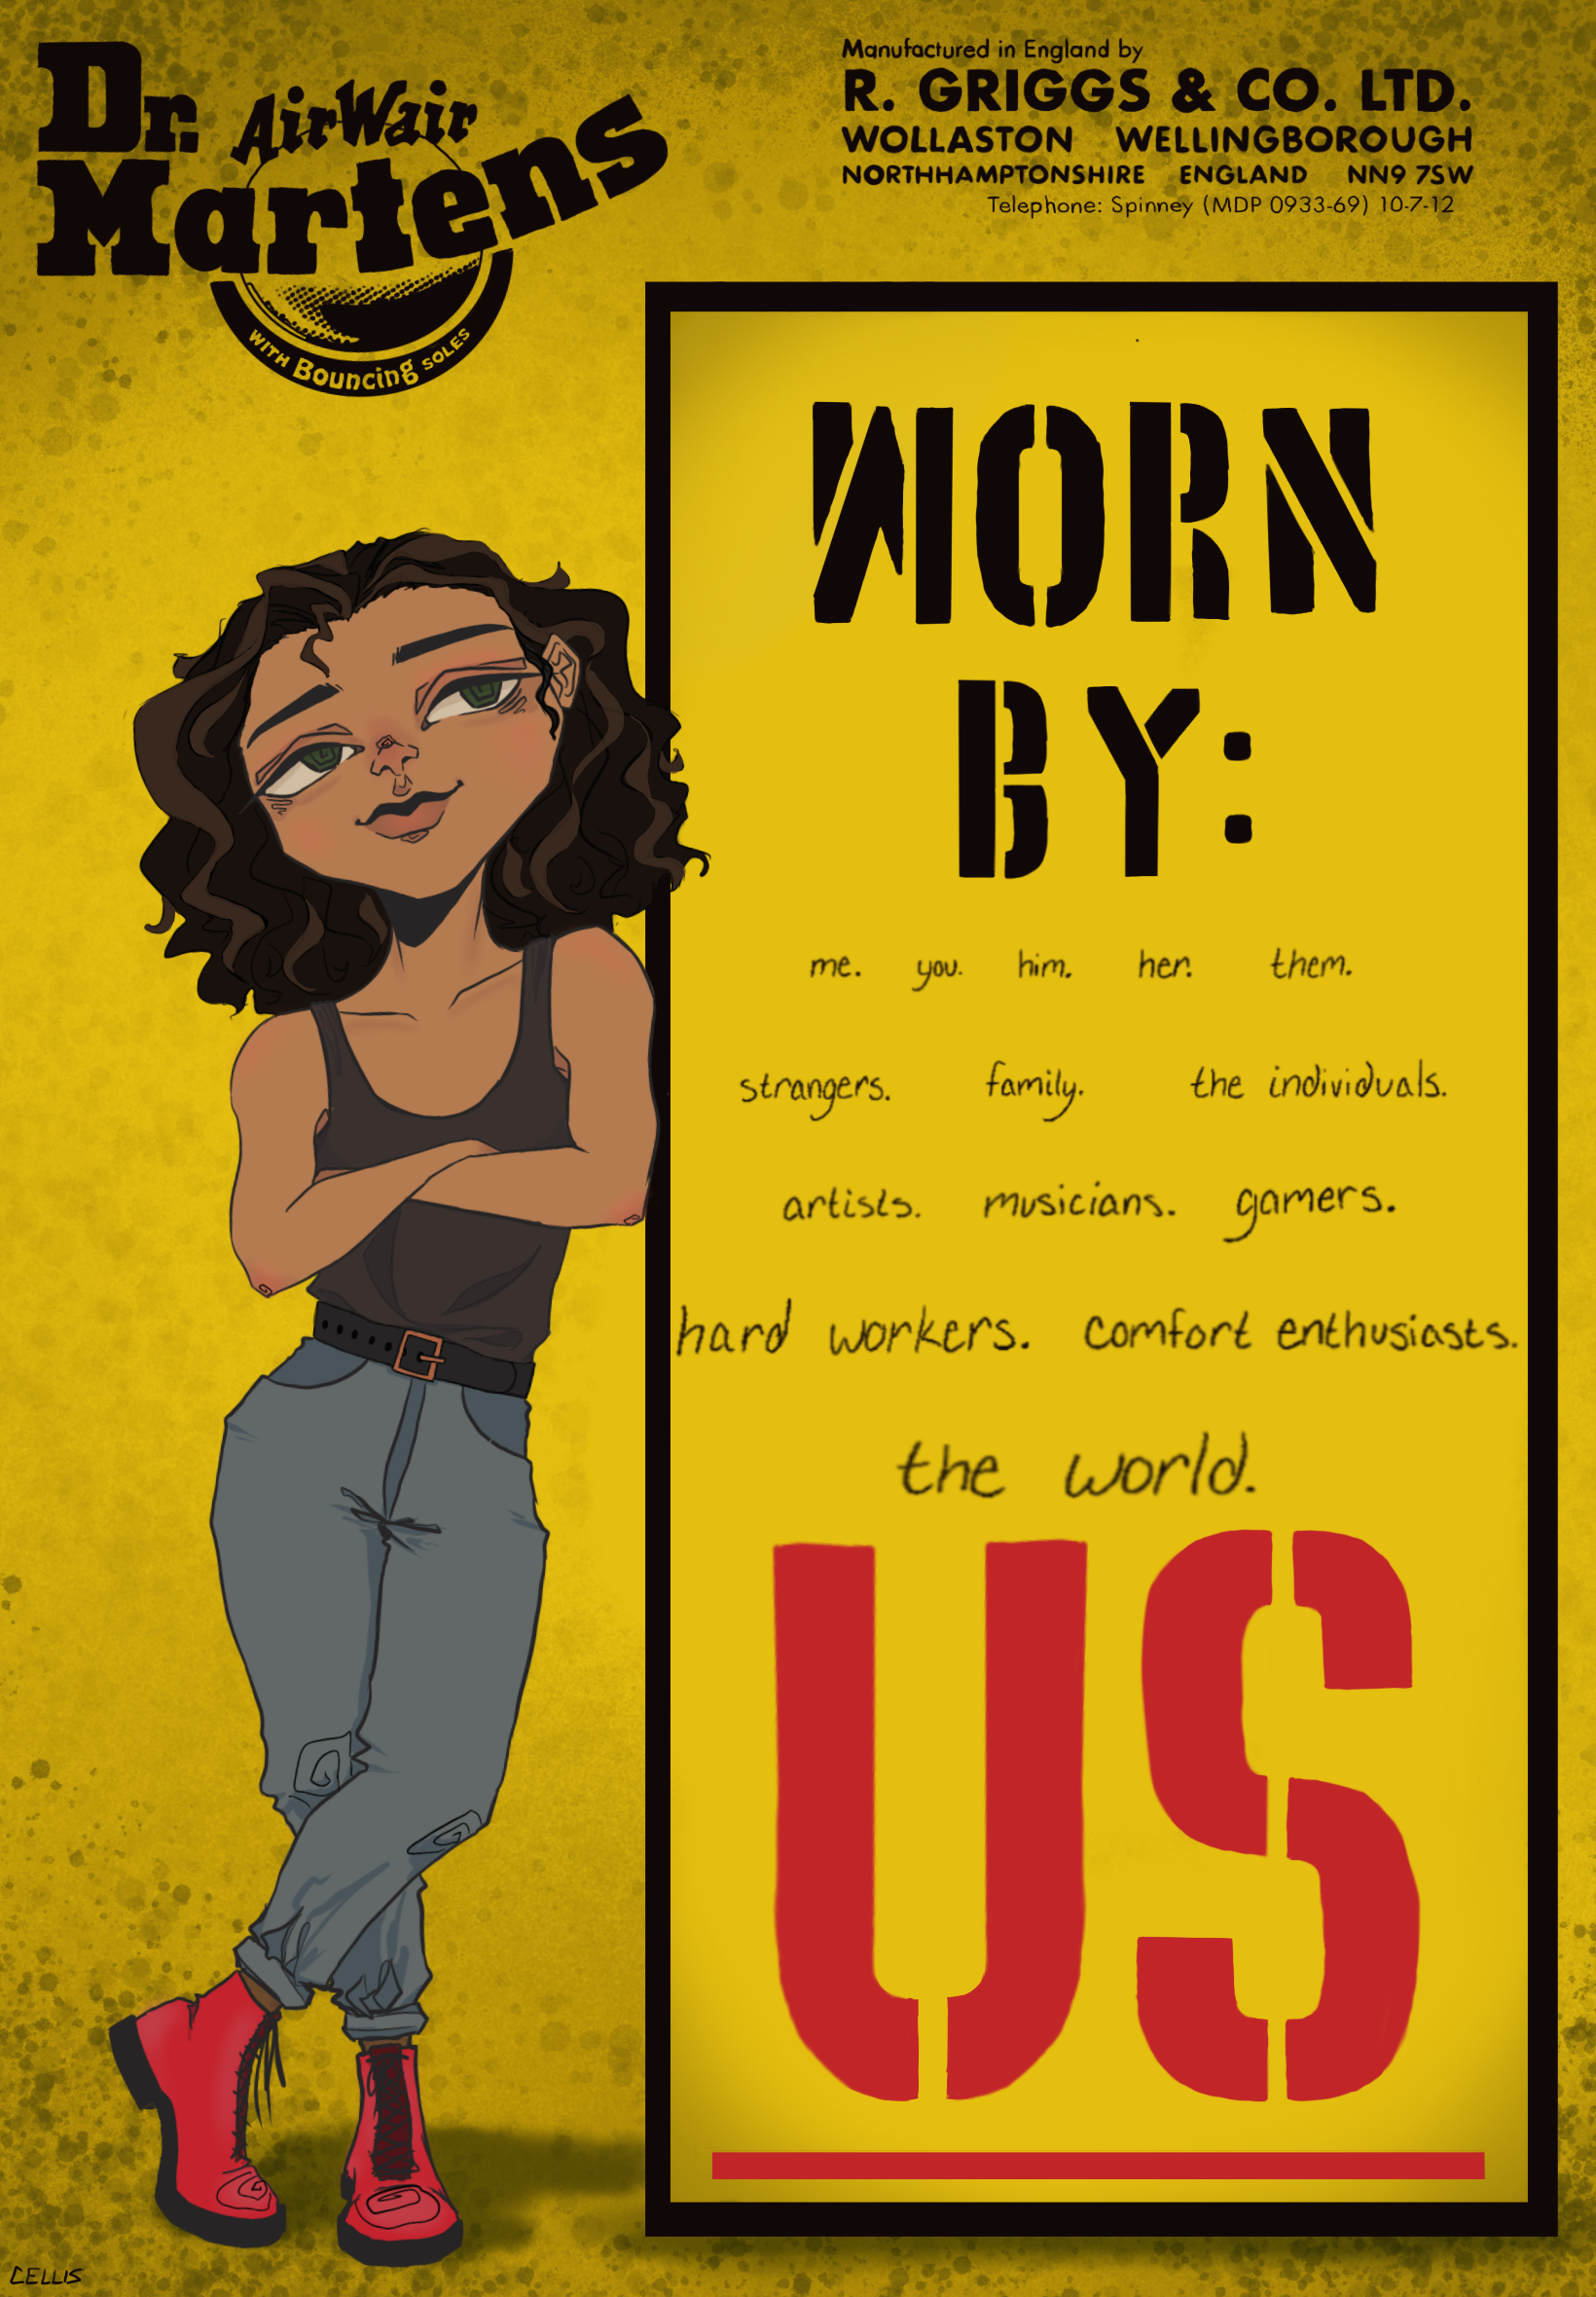 Dr. AirWair
Martens
WITH Bouncing SOLES
Manufactured in England by
R. GRIGGS & CO. LTD.
WOLLASTON WELLINGBOROUGH
NORTHHAMPTONSHIRE ENGLAND NN9 7SW
Telephone: Spinney (MDP 0933-69) 10-7-12
WORN
BY:
me. you. him. her. them.
strangers. family. the individuals.
artists. musicians. gamers.
hard workers. comfort enthusiasts.
the world.
US
CELLIS